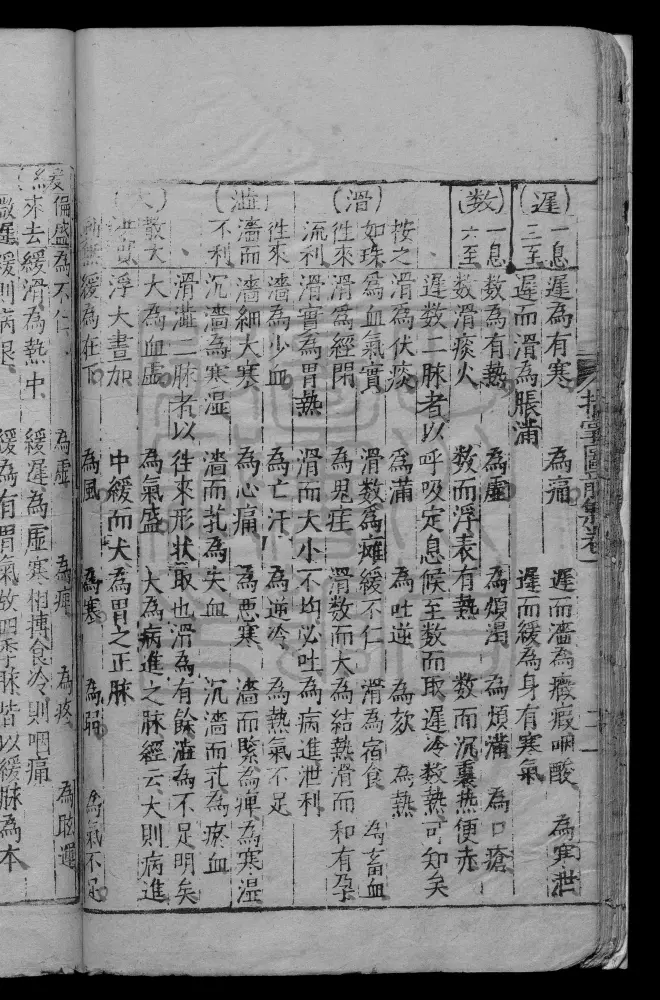 指掌圖脉氣卷一
(遲) 一息 三至 遲為有寒 為痛 遲而濇為癥瘕咽酸 為寒泄
遲而滑為脹滿 遲而緩為身有寒氣
(数) 一息 六至 数為有熱 為虛 為煩渴 為煩滿 為口瘡
数滑痰火 数而浮表有熱 数而沉裏熱便赤
遲数二脉者以呼吸定息候至数而取遲冷数熱可知矣
(滑) 按之 滑為伏痰 為滿 為吐逆 為欬 為熱
如珠 為血氣實 滑数為癱緩不仁 滑為宿食 為畜血
往來 滑為經閉 為鬼疰 滑数而大為結熱滑而和有孕
流利 滑實為胃熱 滑而大小不均必吐為病進泄利
(澁) 往來 濇為少血 為亡汗 為逆冷 為熱氣不足
濇而 濇細大寒 為心痛 為悪寒 濇而緊為痺為寒湿
不利 沉濇為寒湿 濇而芤為失血 沉濇而芤為瘀血
滑澁二脉者以往來形狀取也滑為有餘澁為不足明矣
(大) 散大 大為血虛 為氣盛 大為病進之脉經云大則病進
洪實 浮大晝加 中緩而大為胃之正脉
緩為在下 為風 為寒 為弱 為氣不足
緩 偏盛為不仁 為虛 為痺 為疼 為眩運
來去緩滑為熱中 緩遲為虛寒相搏食冷則咽痛
微遲 緩則病退 緩為有胃氣故四季脉皆以緩脉為本